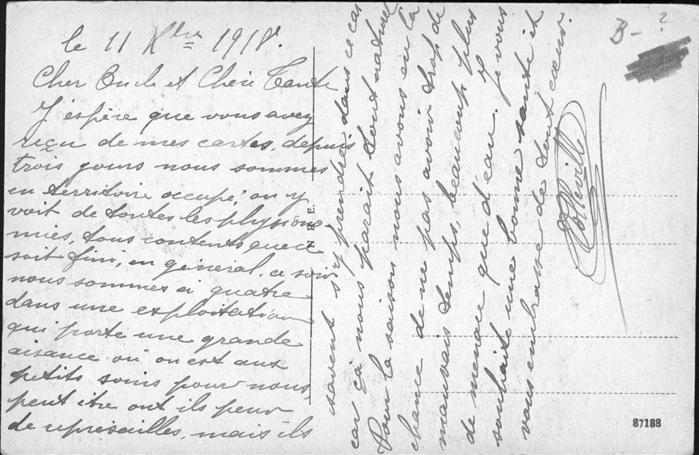 le 11 Xbre 1918.
Cher Oncle et Chère Tante
J'espère que vous avez
reçu de mes cartes, depuis
trois jours nous sommes
en territoire occupé, on y
voit de toutes les physiono
mies, tous contents que ce
soit fini, en général, ce soir
nous sommes à quatre
dans une exploitation
qui porte une grande
aisance où on est aux
petits soins pour nous
peut être ont ils peur
de représailles, mais ils
savent s'y prendre dans ce cas
car ça nous paraît tout naturel
Pour la saison nous avons eu la
chance de ne pas avoir trop de
mauvais temps, beaucoup plus
de menace que d'eau. Je vous
souhaite une bonne santé et
vous embrasse de tout cœur.
B- ?
87188